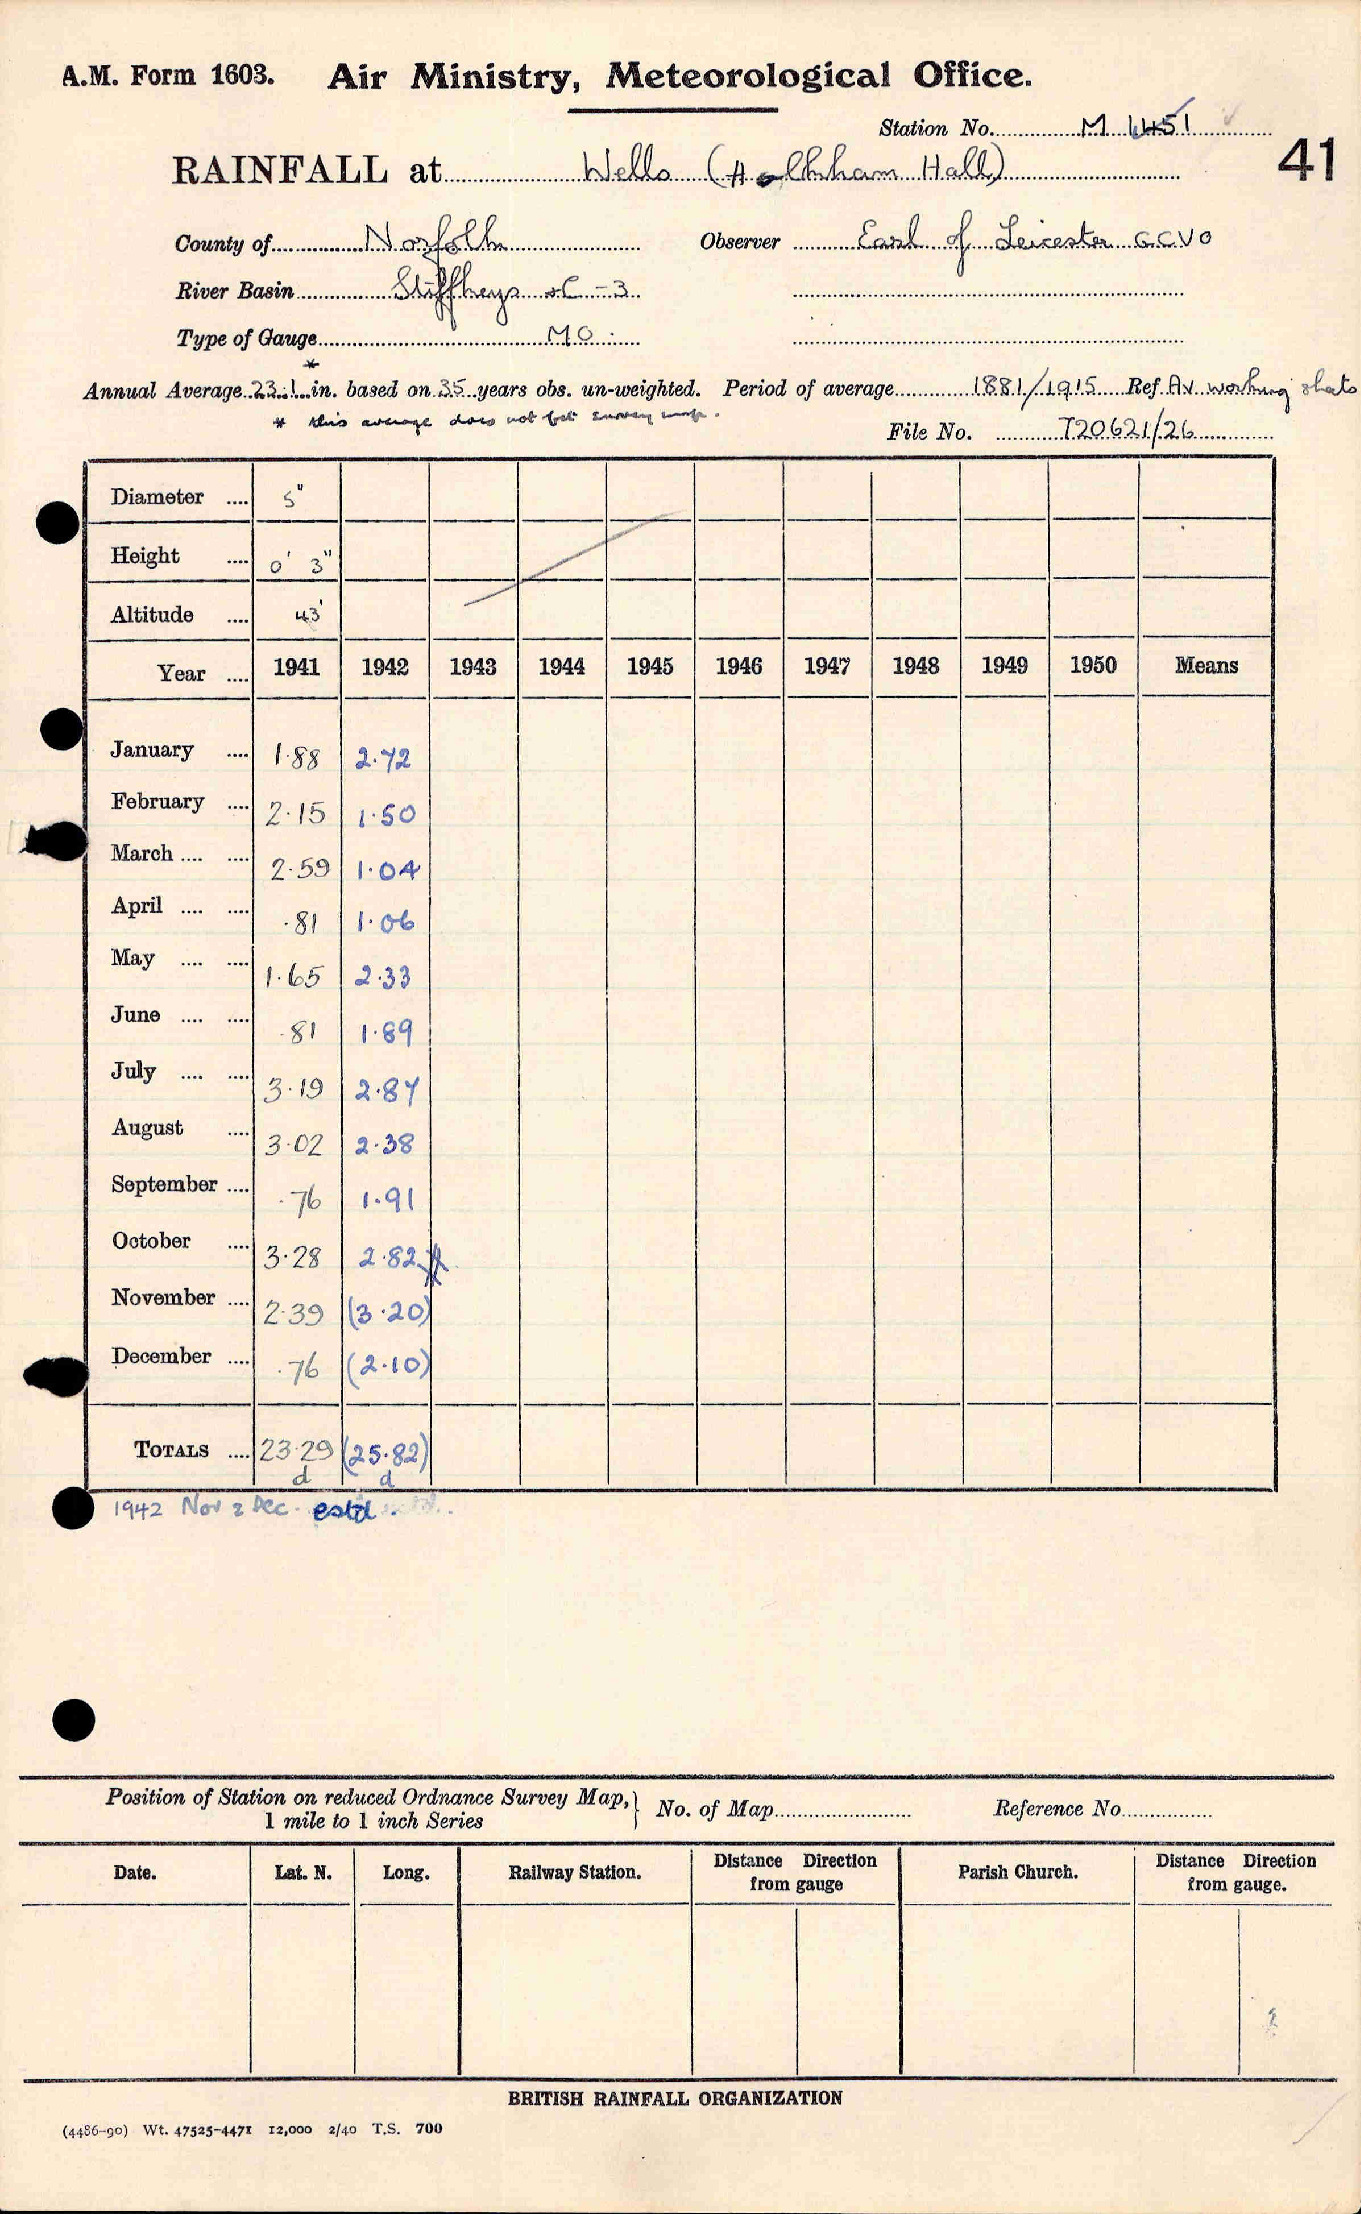 A.M. Form 1603. Air Ministry, Meteorological Office.
Station No. M 1451
41
RAINFALL at Wells (Holkham Hall)
County of Norfolk Observer Earl of Leicester GCVO
River Basin Stiffkeys &C - 3
Type of Gauge MO
*
Annual Average 23.1 in. based on 35 years obs. un-weighted. Period of average 1881/1915 Ref. Av working shats
* this average does not fit survey map.
File No. T20621/26
Diameter .... 5"
Height .... 0' 3"
Altitude .... 43'
Year .... 1941 1942 1943 1944 1945 1946 1947 1948 1949 1950 Means
January .... 1.88 2.72
February .... 2.15 1.50
March .... .... 2.59 1.04
April .... .... .81 1.06
May .... .... 1.65 2.33
June .... .... .81 1.89
July .... .... 3.19 2.87
August .... 3.02 2.38
September .... .76 1.91
October .... 3.28 2.82
November .... 2.39 (3.20)
December .... .76 (2.10)
TOTALS .... 23.29 (25.82)
d d
1942 Nov & Dec. estd.
Position of Station on reduced Ordnance Survey Map, } No. of Map Reference No.
1 mile to 1 inch Series
Date. Lat. N. Long. Railway Station. Distance Direction from gauge Parish Church. Distance Direction from gauge.
BRITISH RAINFALL ORGANIZATION
(4486-90) Wt. 47525-4471 12,000 2/40 T.S. 700